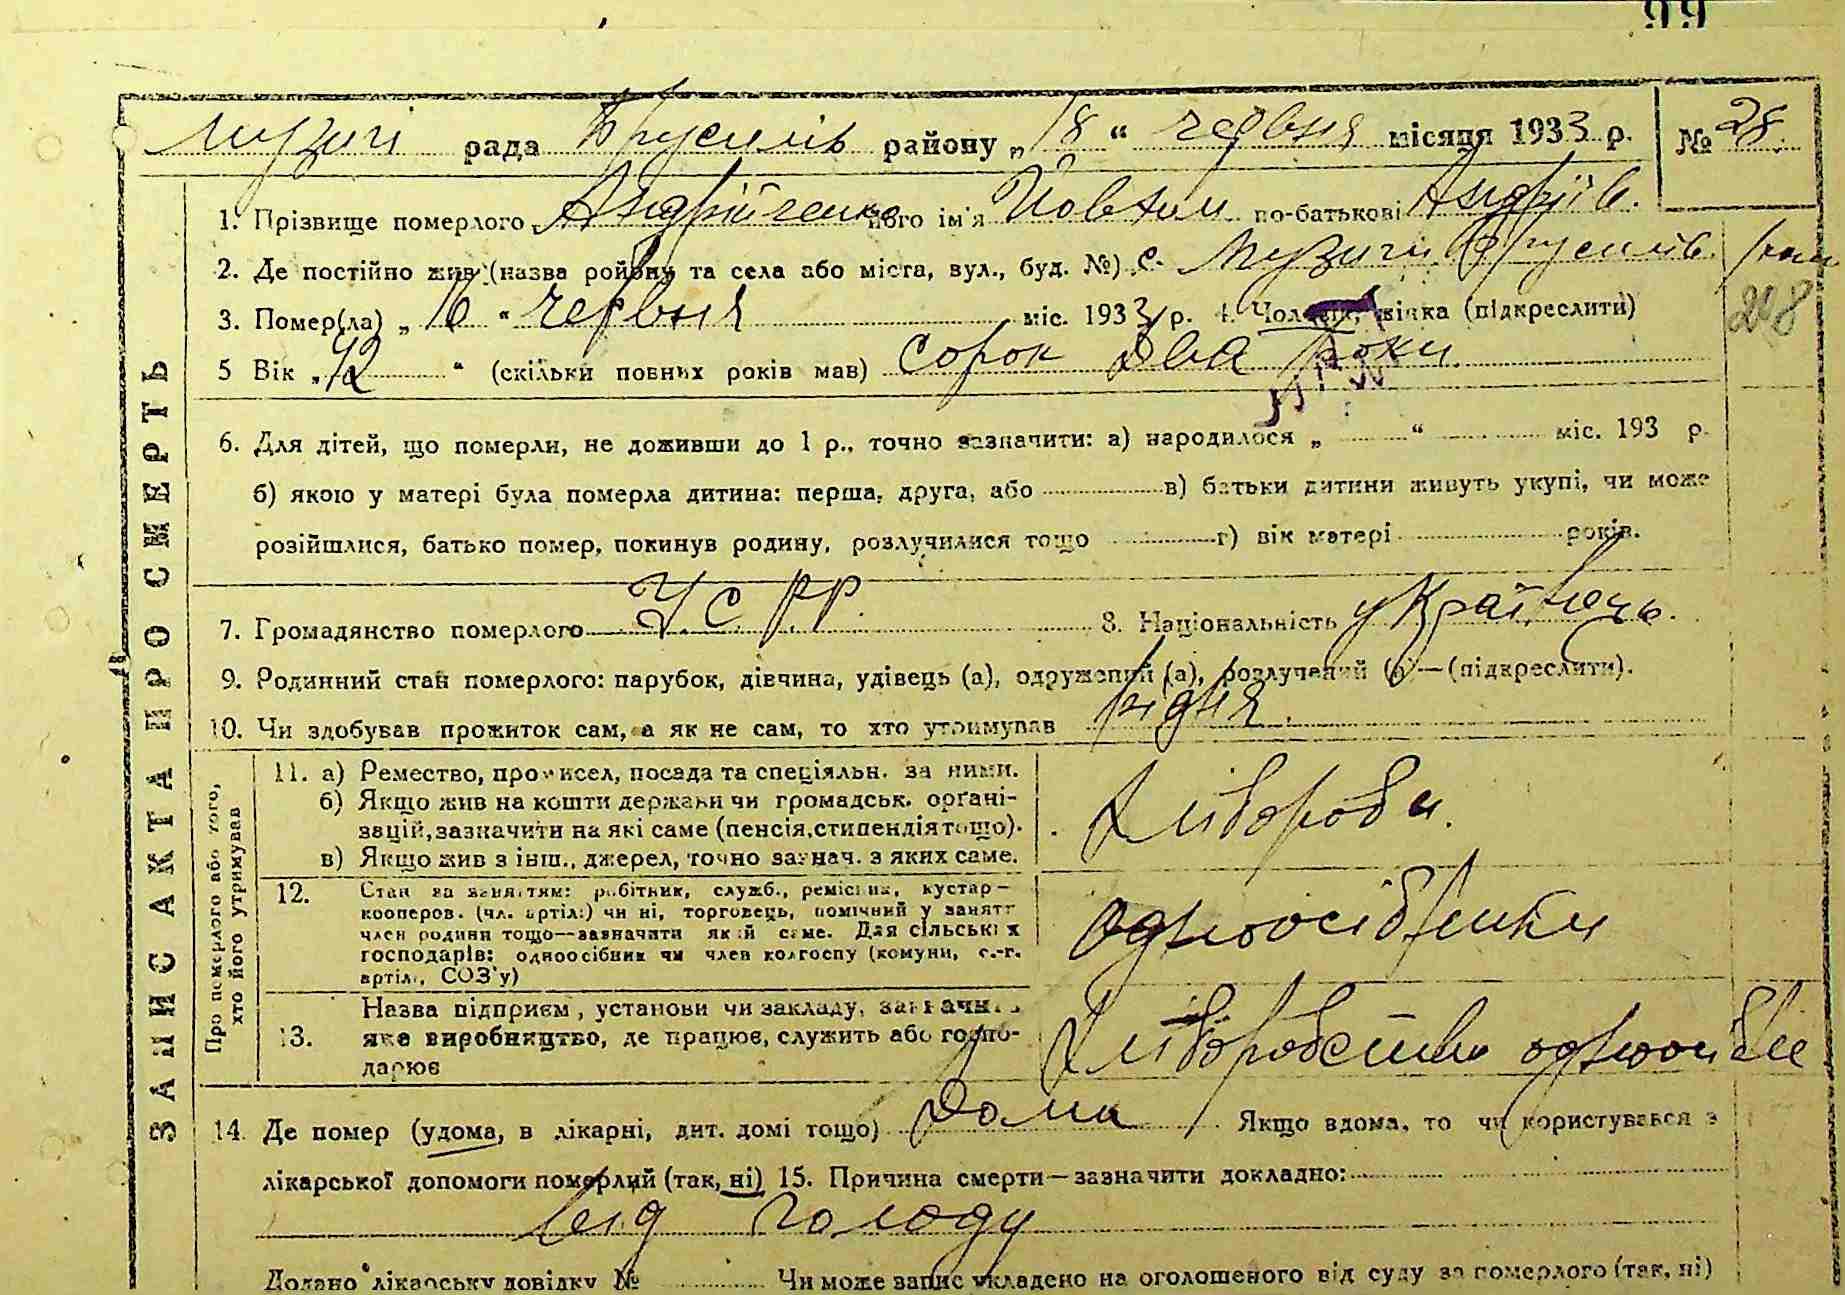 99
Музичі рада Брусилів району „18“ червня місяця 1933 р. № 28.
1. Прізвище померлого Андрійченко його ім'я Йовхим по-батькові Андріїв.
2. Де постійно жив (назва ройону та села або міста, вул., буд. №) с. Музичи Брусилів.
3. Помер(ла) „16“ червня міс. 1933 р. 4. Чоловік, жінка (підкреслити)
208
5 Вік „42“ (скільки повних років мав) сорок два роки
6. Для дітей, що померли, не доживши до 1 р., точно зазначити: а) народилося „ “ міс. 193 р.
б) якою у матері була померла дитина: перша, друга, або в) батьки дитини живуть укупі, чи може
розійшлися, батько помер, покинув родину, розлучилися тощо г) вік матері років.
7. Громадянство померлого УСРР. 8. Національність українець.
9. Родинний стан померлого: парубок, дівчина, удівець (а), одружений (а), розлучений (а)—(підкреслити).
10. Чи здобував прожиток сам, а як не сам, то хто утримував рідня.
ЗАПИС АКТА ПРО СМЕРТЬ
Про померлого або того, хто його утримував
11. а) Ремество, промисел, посада та спеціяльн. за ними.
б) Якщо жив на кошти держави чи громадськ. організацій, зазначити на які саме (пенсія, стипендія тощо).
в) Якщо жив з інш., джерел, точно зазнач. з яких саме.
Хлібороби.
12. Стан за заняттям: робітник, служб., ремісник, кустар—
кооперов. (чл. артіл:) чи ні, торговець, помічний у занятт
член родини тощо—зазначити який саме. Для сільських
господарів: одноосібник чи член колгоспу (комуни, с.-г.
артіл., СОЗ'у)
одноосібники
13. Назва підприєм, установи чи закладу, зазначить
яке виробництво, де працює, служить або госпо-
дарює
Хліборобство
14. Де помер (удома, в лікарні, дит. домі тощо) Дома Якщо вдома, то чи користувався з
лікарської допомоги померлий (так, ні) 15. Причина смерти—зазначити докладно:
від голоду
Додано лікарську довідку № Чи може запис укладено на оголошеного від суду за померлого (так, ні)